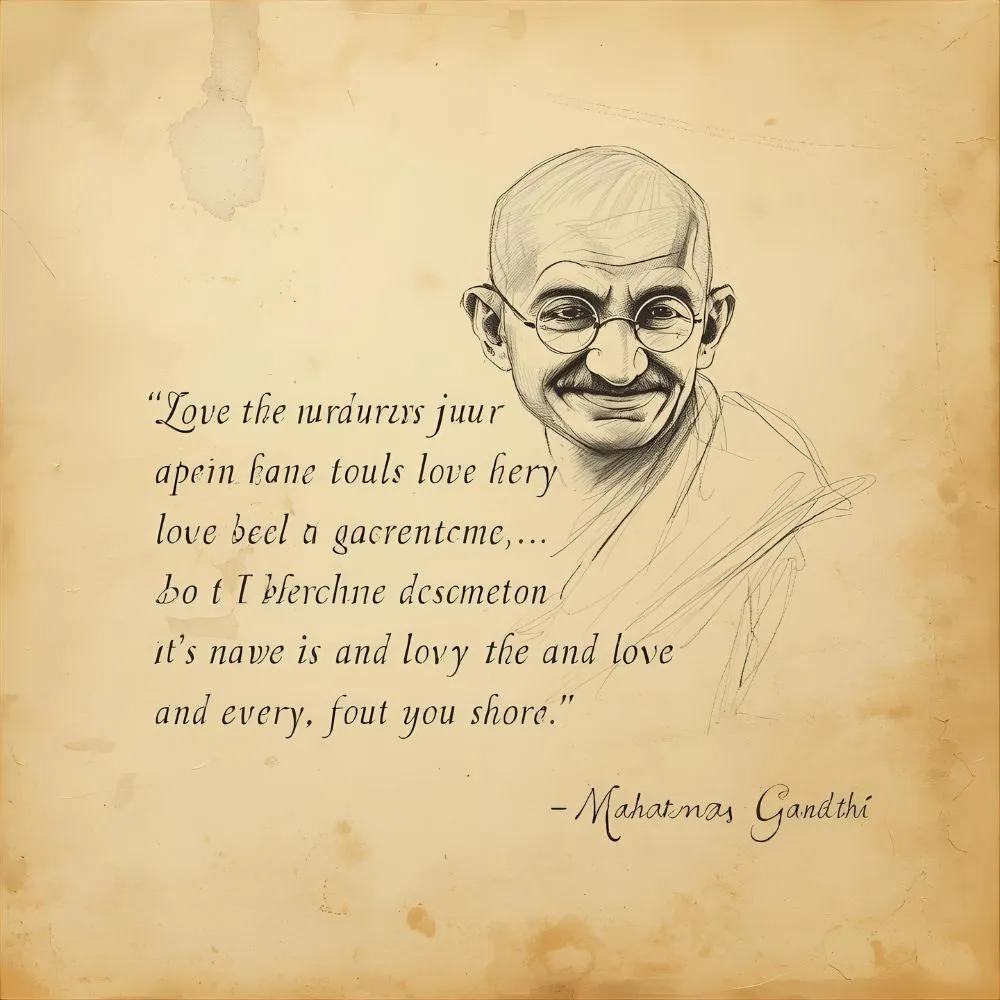 “Love the nurdurzrs juur
apein hane touls love hery
love beel a gacrentcme,...
bo t I blerchne dcscmeton
it's nawe is and lovy the and love
and every, fout you shore.”
– Mahatmas Gandthi